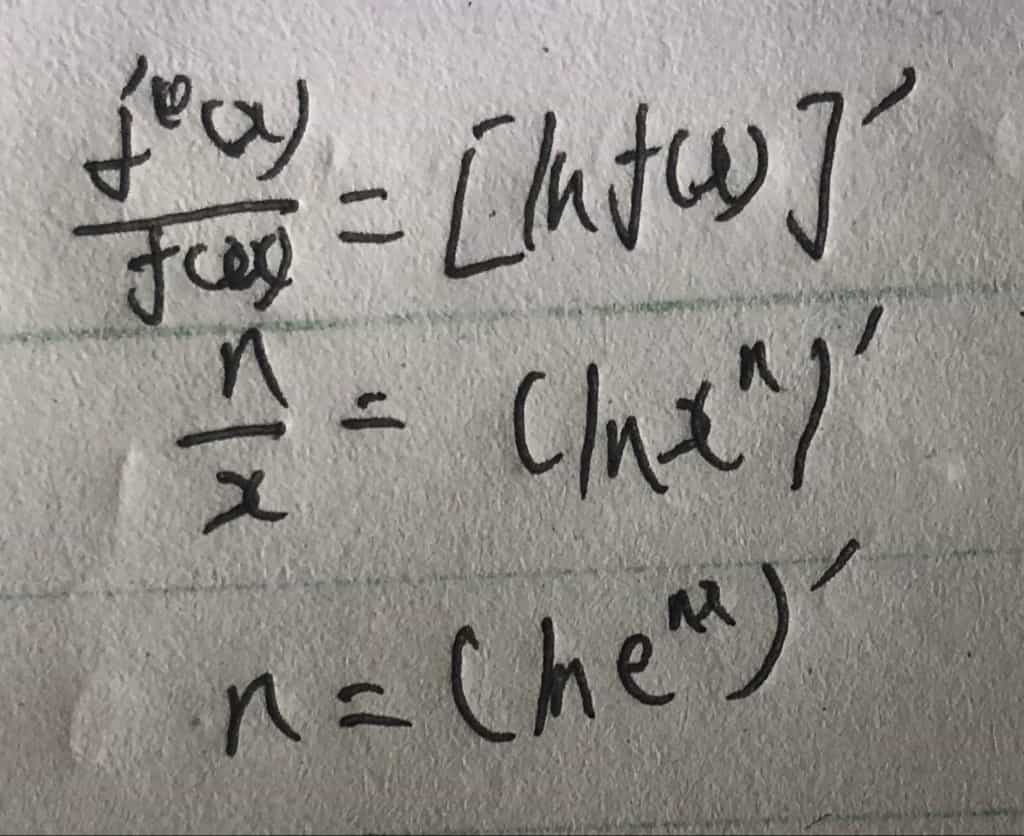 f'(x)/f(x) = [ln f(x)]'
n/x = (ln xⁿ)'
n = (ln eⁿˣ)'